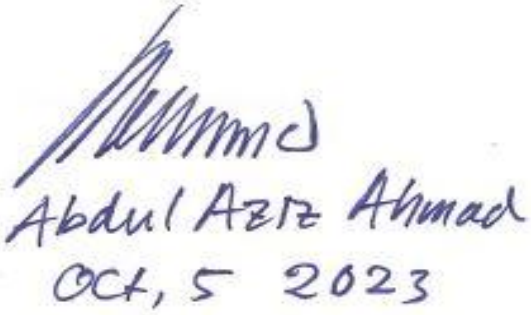 Abdul Aziz Ahmad
Oct, 5 2023